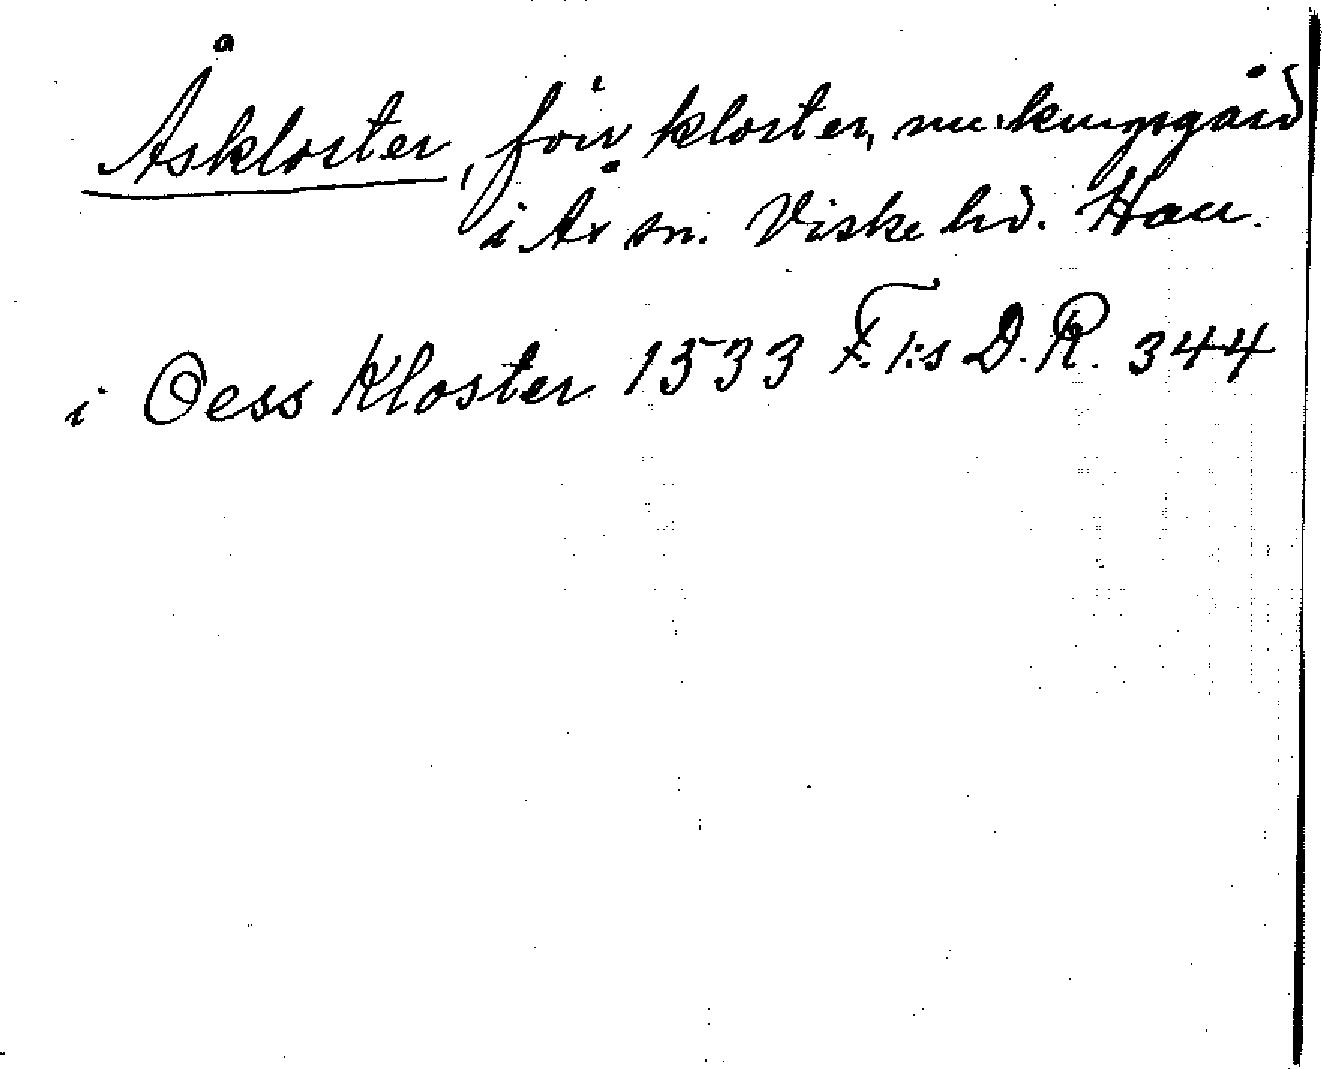 Åskloster, förr kloster, nu kungsgård
i Ås sn. Viske hd. Hall.
i Oess Kloster 1533 F. I:s D.R. 344